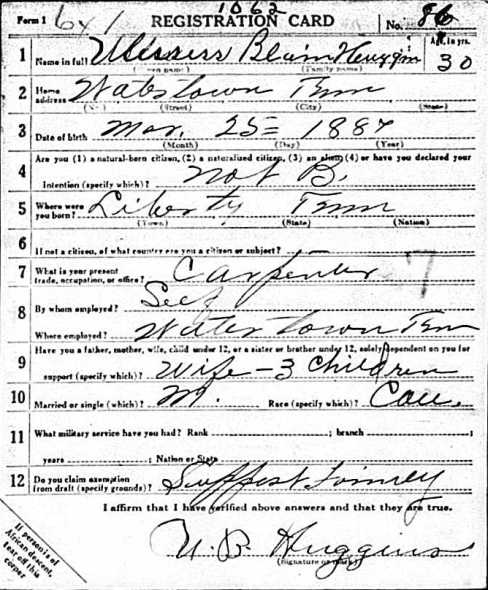 1062
Form 1 6x1 REGISTRATION CARD No. 86
1 Name in full Ulissess Blain Huggin Age, in yrs. 30
(Given name) (Family name)
2 Home address Watertown Tenn
(No.) (Street) (City) (State)
3 Date of birth Mar. 25 1887
(Month) (Day) (Year)
Are you (1) a natural-born citizen, (2) a naturalized citizen, (3) an alien, (4) or have you declared your
4 Intention (specify which)? Nat B.
5 Where were you born? Liberty Tenn
(Town) (State) (Nation)
6 If not a citizen, of what country are you a citizen or subject?
7 What is your present trade, occupation, or office? Carpenter
8 By whom employed? Self
Where employed? Watertown Tenn
Have you a father, mother, wife, child under 12, or a sister or brother under 12, solely dependent on you for
9 support (specify which)? Wife - 3 Children
10 Married or single (which)? M. Race (specify which)? Cau.
11 What military service have you had? Rank ; branch ;
years ; Nation or State
12 Do you claim exemption from draft (specify grounds)? Support
I affirm that I have verified above answers and that they are true.
U B Huggins
(Signature or mark)
If person is of
African descent,
tear off this
corner